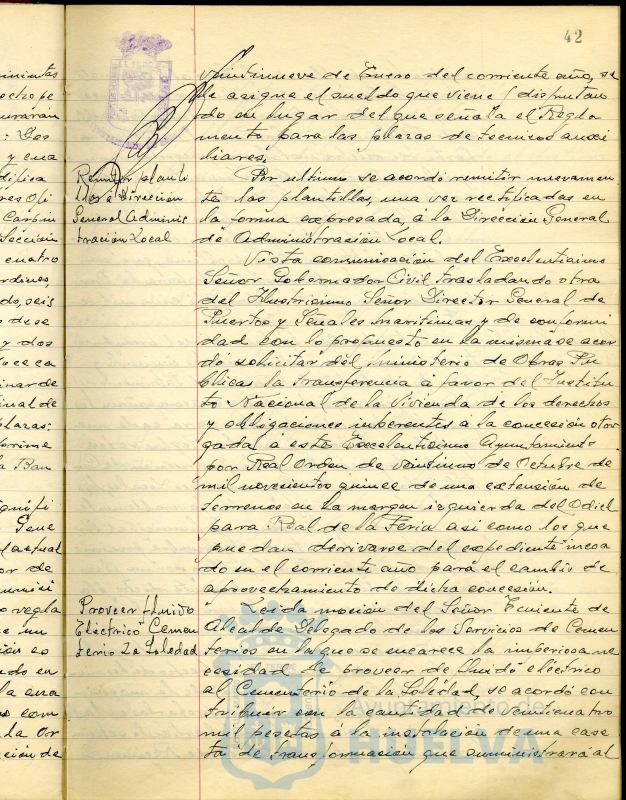 42
veintinueve de Enero del corriente año, se
le asigne el sueldo que viene disfrutan
do en lugar del que señala el Regla
mento para las plazas de tecnicos auxi
liares.
Remitir planti
llas a Direccion
General Adminis
tración Local
Por ultimo se acordó remitir nuevamen
te las plantillas, una vez rectificadas en
la forma expresada, a la Dirección General
de Administracion Local.
Vista comunicación del Excelentisimo
Señor Gobernador Civil trasladando otra
del Ilustrisimo Señor Director General de
Puertos y Señales Maritimas y de conformi
dad con lo propuesto en la misma se acor
dó solicitar del Ministerio de Obras Pú
blicas la transferencia a favor del Institu
to Nacional de la Vivienda de los derechos
y obligaciones inherentes a la concesión otor
gada a este Excelentisimo Ayuntamiento
por Real Orden de veintiuno de Octubre de
mil novecientos quince de una extensión de
terrenos en la margen izquierda del Odiel
para Real de la Feria asi como los que
puedan derivarse del expediente incoa
do en el corriente año para el cambio de
aprovechamiento de dicha concesión.
Proveer fluido
Eléctrico Cemen
terio La Soledad
Leida moción del Señor Teniente de
Alcalde Delegado de los Servicios de Cemen
terios en la que se encarece la imperiosa ne
cesidad de proveer de fluido eléctrico
al Cementerio de la Soledad, se acordó con
tribuir con la cantidad de veinticuatro
mil pesetas a la instalación de una case
ta de transformación que suministrará al
Ayuntamiento de
HUELVA